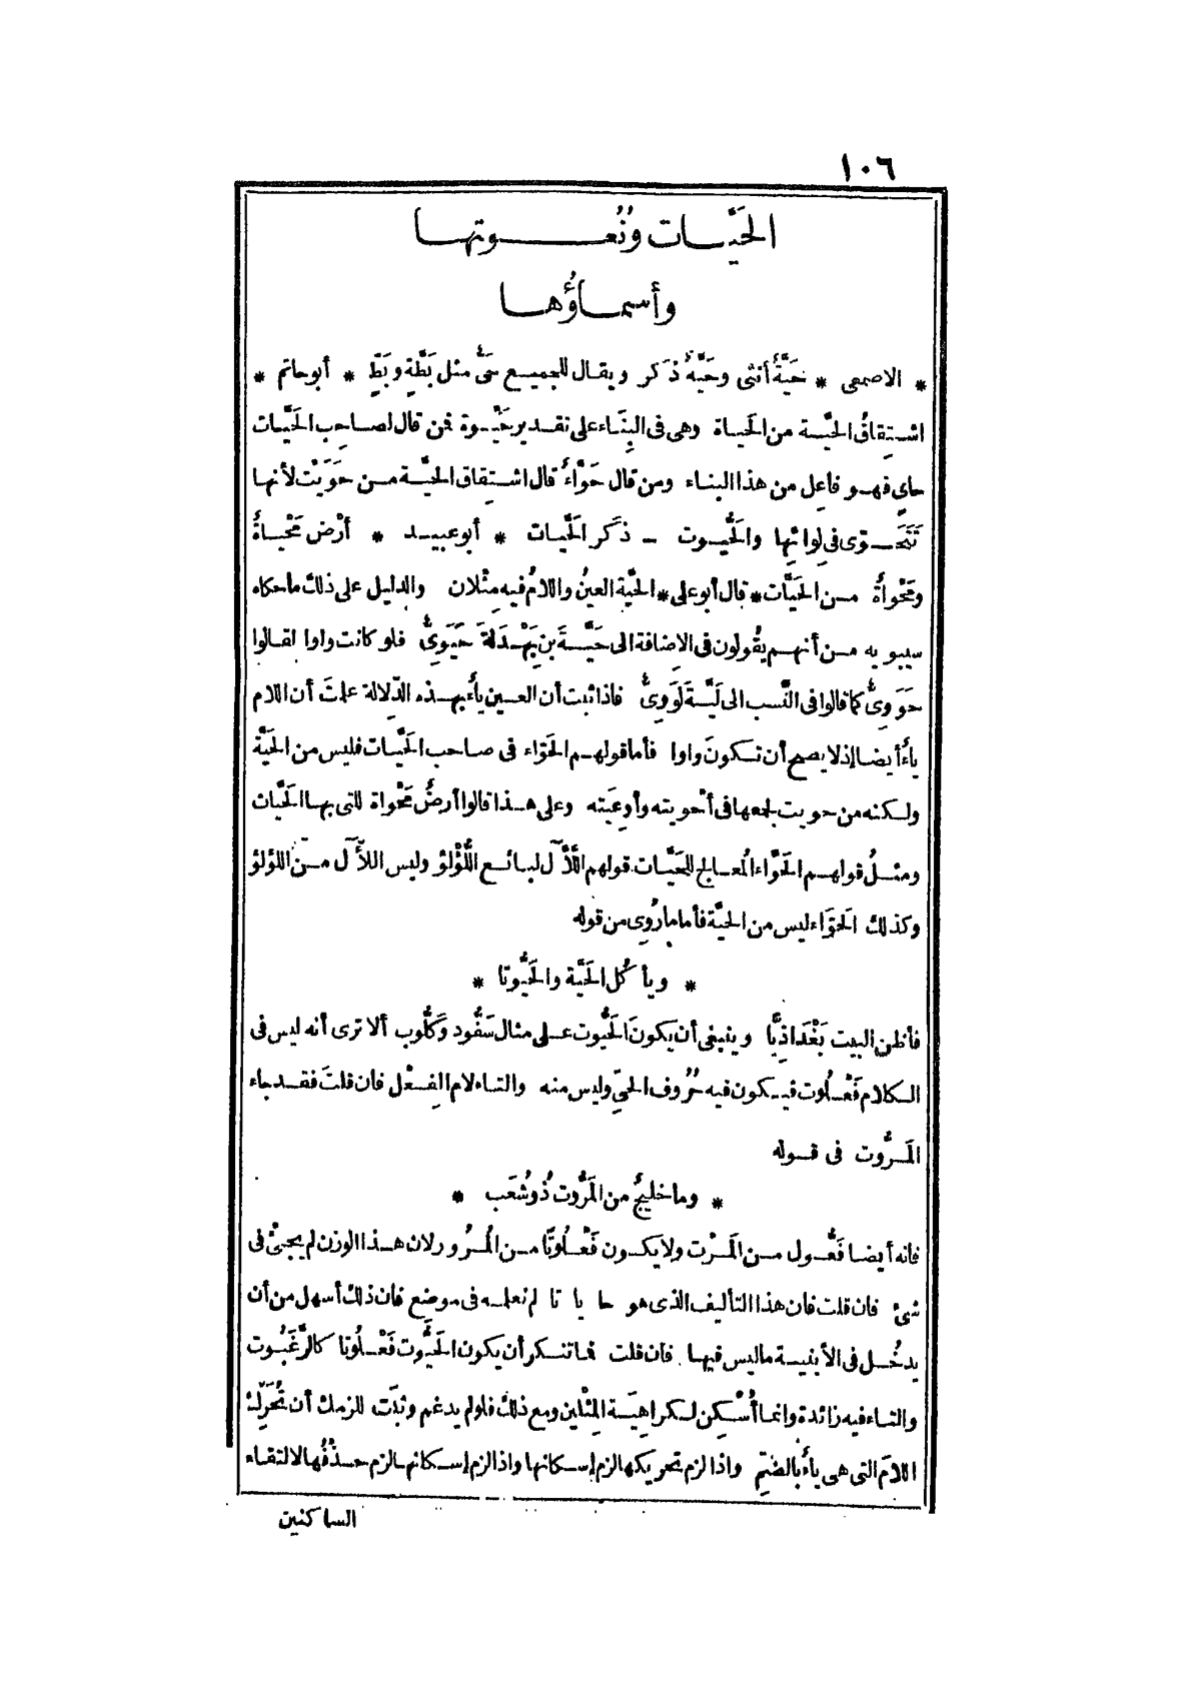 ١٠٦
الحَيَّات ونُعوتها
وأسماؤُها
* الاصمعى * حَيَّةٌ أنثى وحَيَّةٌ ذَكَر ويقال للجميع حَىٌّ مثل بَطَّةٍ وبَطٍّ * أبو حاتم *
اشتِقاقُ الحيَّة من الحَياة وهى فى البِنَاء على تقدير حَيْوة فمن قال لصاحِب الحَيَّات
حايٍ فهو فاعِل من هذا البناء ومن قال حَوَّاءٌ قال اشتِقاق الحيَّة من حَوَيْت لأنها
تَتَحَوَّى فى لِوائِها والحَيُّوت ـ ذَكَر الحَيَّات * أبو عبيد * أرْض مَحْياةٌ
ومَحْواةٌ من الحَيَّات * قال أبو على * الحيَّة العينُ واللامُ فيه مِثْلان والدليل على ذلك ما حكاه
سيبويه من أنهم يقُولون فى الاضافة الى حَيَّةَ بن بَهْدَلةَ حَيَوِىٌّ فلو كانت واوا لقالوا
حَوَوِىٌّ كما قالوا فى النَّسب الى لَيَّة لَوَوِىٌّ فاذا ثبت أن العين ياءٌ بهذه الدِّلالة علمتَ أن اللام
ياءٌ أيضا إذ لا يصح أن تكونَ واوا فأما قولهم الحَوَّاء فى صاحب الحَيَّات فليس من الحَيَّة
ولكنه من حويت لجمعها فى أحْوِيته وأوعِيَته وعلى هذا قالوا أرضٌ مَحْواة للتى بها الحَيَّات
ومثلُ قولهم الحَوَّاء المُعالِج للحَيَّات قولهم اللَّآّل لبائع اللُّؤْلؤ وليس اللآّل من اللؤلؤ
وكذلك الحَوَّاء ليس من الحيَّة فأما ما رُوِى من قوله
* ويأكُل الحَيَّة والحَيُّوتا *
فأظن البيت بَغْدَاذِيًّا وينبغى أن يكونَ الحَيُّوت على مثال سَفُّود وكَلُّوب ألا ترى أنه ليس فى
الكلام فَعْلُوت فيكون فيه حُرُوف الحىّ وليس منه والتاء لام الفِعْل فان قلتَ فقد جاء
المَرُّوت فى قوله
* وما خليجٌ من المَرُّوت ذُو شُعَب *
فانه أيضا فَعُّول من المَرْت ولا يكون فَعْلُوتًا من المُرُور لان هذا الوزن لم يجئْ فى
شئ فان قلت فان هذا التأليف الذى هو حا يا تا لم نعلمه فى موضع فان ذلك أسهل من أن
يدخُل فى الأبنية ما ليس فيها فان قلت فما تنكر أن يكون الحَيُّوت فَعْلُوتا كالرَّغَبُوت
والتاء فيه زائدة وانما أُسْكِن لكراهِيَة المِثْلين ومع ذلك فلو لم يدغم وثبَت للزمك أن تُحَرِّك
اللامَ التى هى ياءٌ بالضمِّ واذا لزم تحريكها لزم إسكانها واذا لزم إسكانها لزم حذْفُها لالتقاء
الساكنين